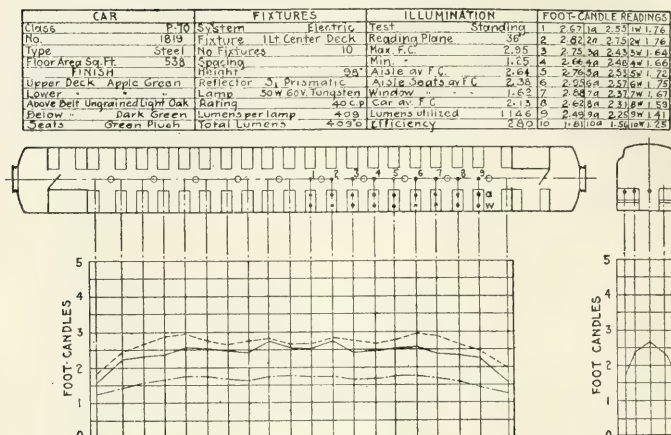 CAR FIXTURES ILLUMINATION FOOT-CANDLE READINGS
Class P-70 System Electric Test Standing 1 2.67 1a 2.53 1w 1.76
No. 1819 Fixture 1Lt. Center Deck Reading Plane 36" 2 2.82 2a 2.75 2w 1.76
Type Steel No Fixtures 10 Max. F.C. 2.95 3 2.75 3a 2.43 3w 1.64
Floor Area Sq. Ft. 538 Spacing Min. " 1.25 4 2.66 4a 2.48 4w 1.66
FINISH Height 98" Aisle av F.C. 2.64 5 2.76 5a 2.55 5w 1.72
Upper Deck Apple Green Reflector Prismatic Aisle Seats av F.C. 2.38 6 2.95 6a 2.57 6w 1.75
Lower " " " Lamp 50W 60V. Tungsten Window " " 1.62 7 2.88 7a 2.37 7w 1.67
Above Belt Ungrained Light Oak Rating 40 c.p Car av. F.C 2.13 8 2.62 8a 2.31 8w 1.59
Below " Dark Green Lumens per lamp 409 Lumens utilized 1146 9 2.49 9a 2.25 9w 1.41
Seats Green Plush Total Lumens 4090 Efficiency 280 10 1.81 10a 1.56 10w 1.25
1 2 3 4 5 6 7 8 9
a
w
5 5
4 4
3 3
2 2
1 1
0 0
FOOT-CANDLES FOOT CANDLES